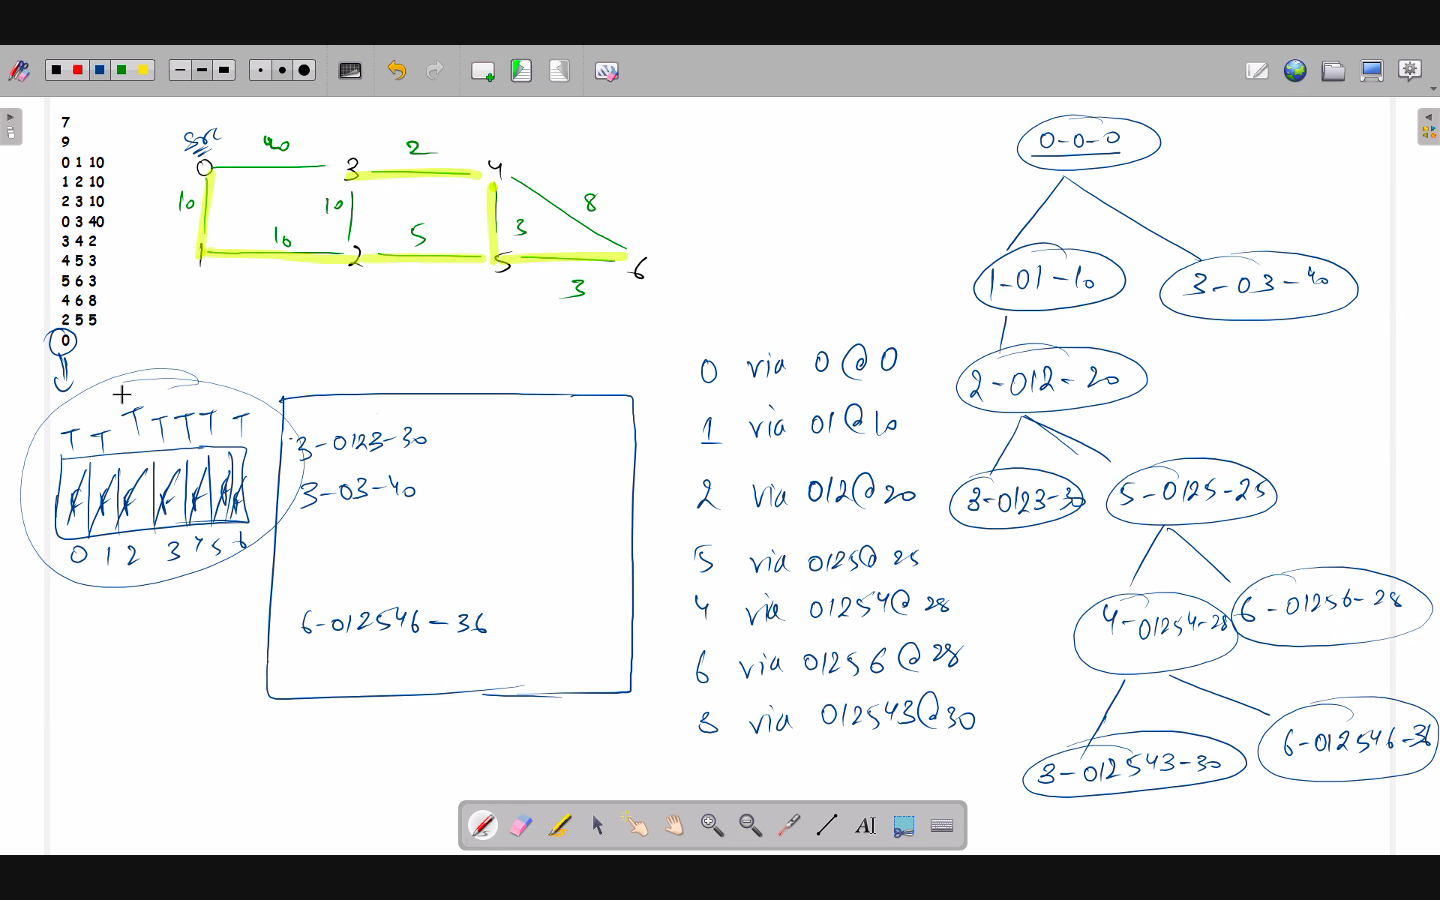 7
9
0 1 10
1 2 10
2 3 10
0 3 40
3 4 2
4 5 3
5 6 3
4 6 8
2 5 5
0
src
0 40 3 2 4
10 10 3 8
1 10 2 5 5 3 6
T T T T T T T
0 1 2 3 4 5 6
3-0123-30
3-03-40
6-012546-36
0 via 0@0
1 via 01@10
2 via 012@20
5 via 0125@25
4 via 01254@28
6 via 01256@28
3 via 012543@30
0-0-0
1-01-10 3-03-40
2-012-20
3-0123-30 5-0125-25
4-01254-28 6-01256-28
3-012543-30 6-012546-36
AI